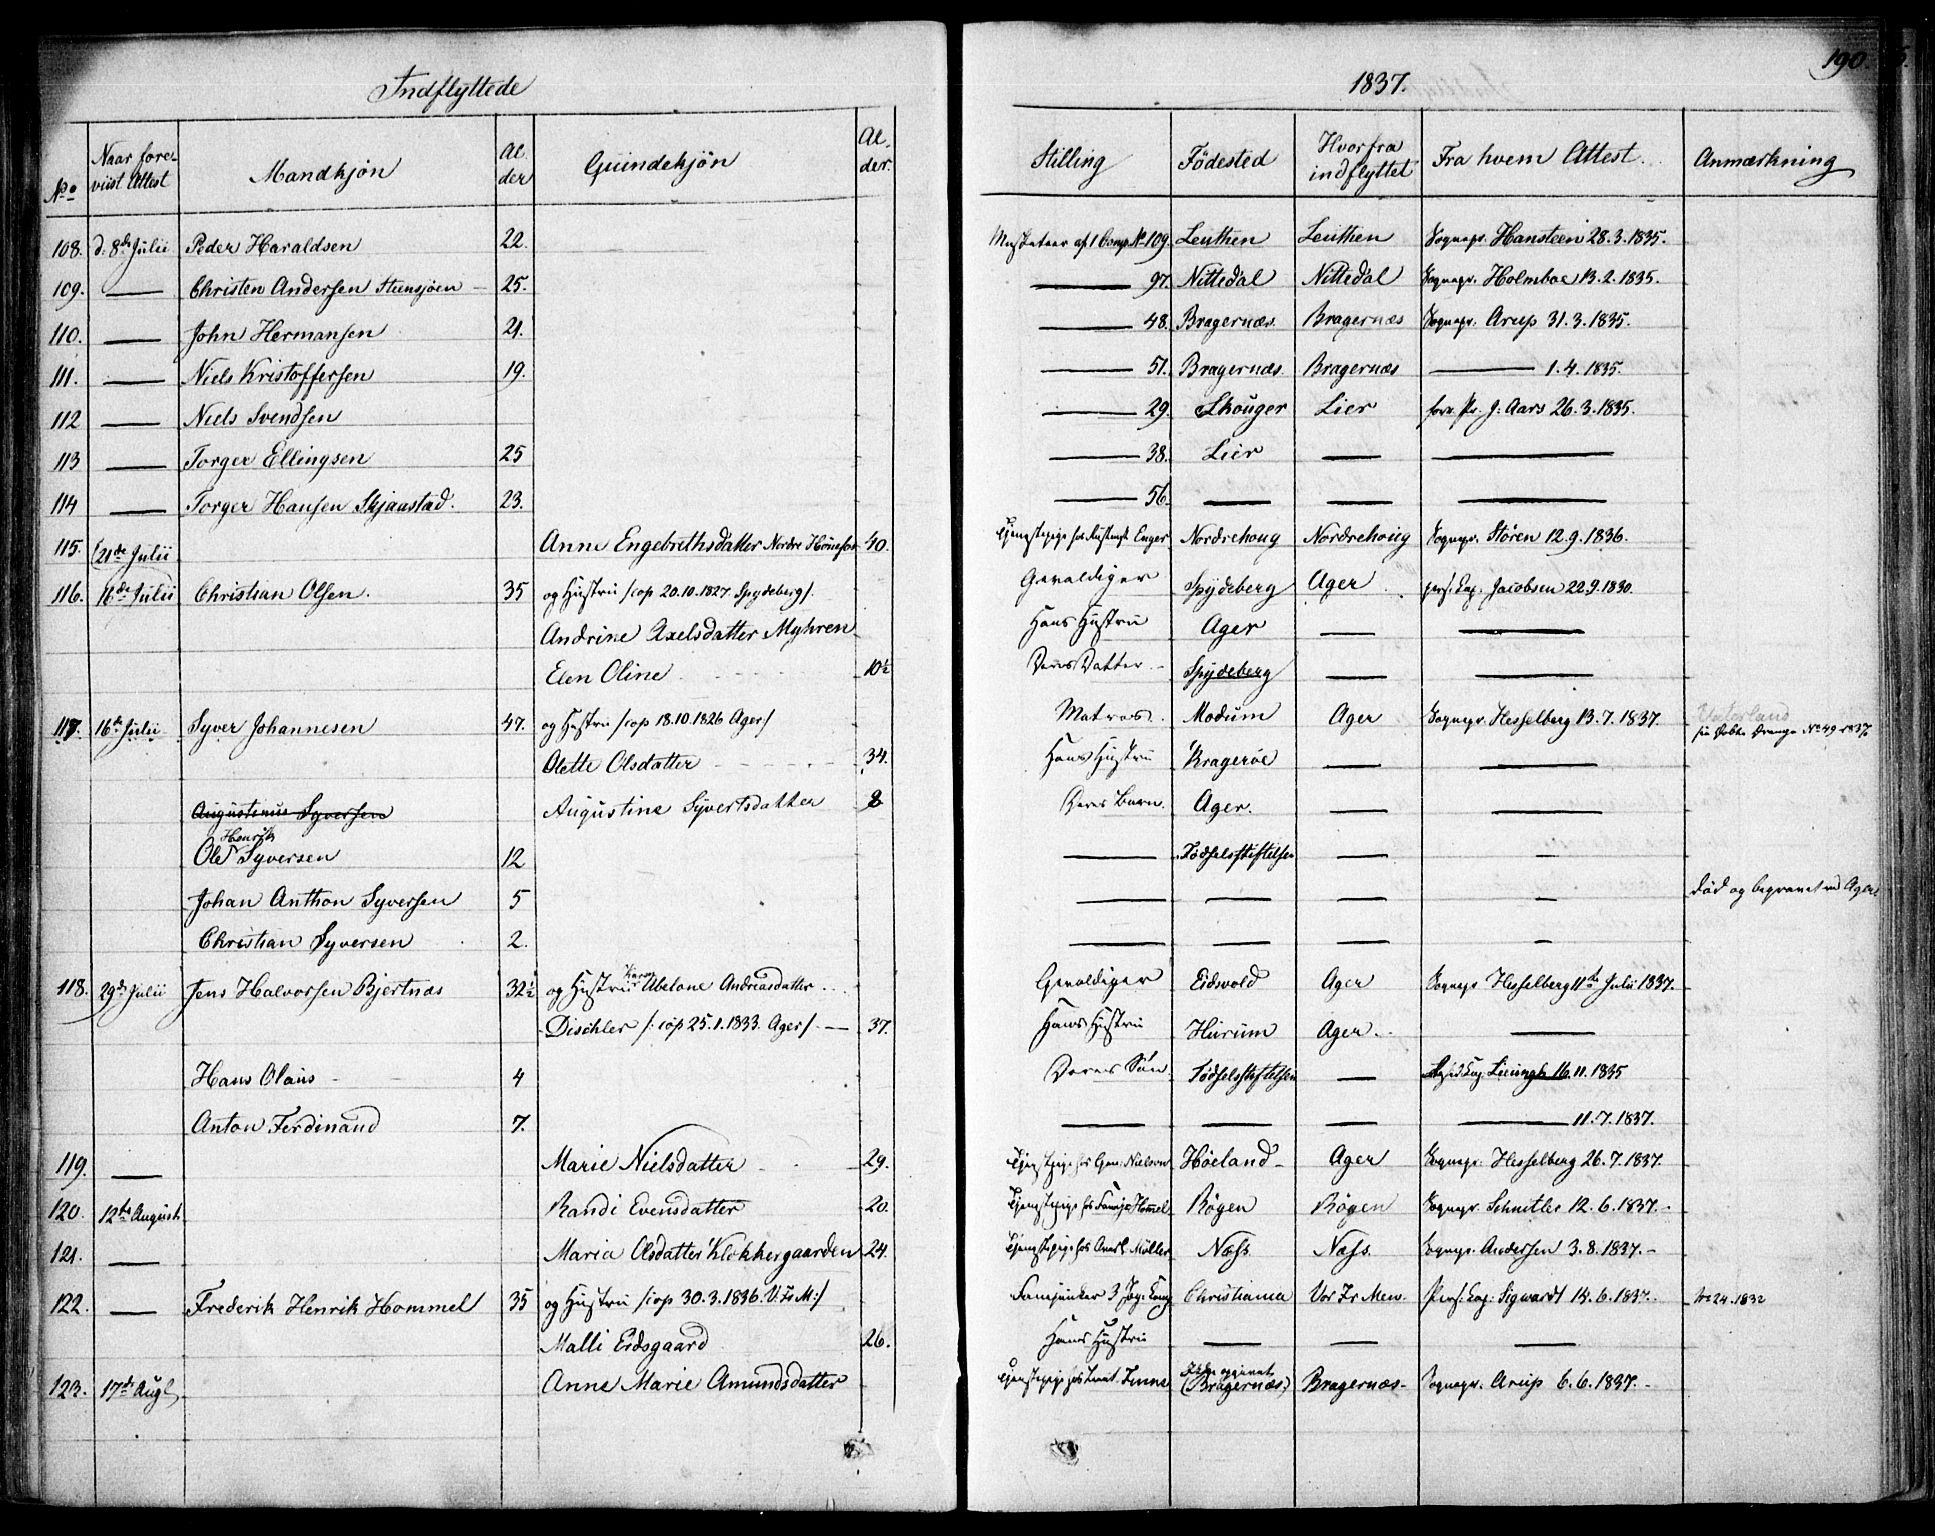 Indflyttede
1837.
190.
No
Naar forevüst Attest
Mandkjøn
Alder
Quindekjøn
Alder.
Stilling
Fødested
Hvorfra indflyttet
Fra hvem Attest.
Anmærkning
108. d. 8de Julii Peder Haraldsen 22. Musketeer af 1 Comp. No 109. Leuthen Leuthen Sognepr. Hansteen 28.3.1835.
109. — Christen Andersen Steensjøen — 25. — 97. Nittedal Nittedal Sognepr. Holmboe 13.2.1835.
110. — John Hermansen 21. — 48. Bragernæs Bragernæs Sognepr. Arup 31.3.1835.
111. — Niels Kristoffersen 19. — 51. Bragernæs Bragernæs — 1.4.1835.
112 — Niels Svendsen — 29. Skouger Lier forr. Pr. J. Aars 26.3.1835.
113 — Torger Ellingsen 25 — 38. Lier — —
114 — Torger Hansen Skjaustad. 23. — 56. — — —
115. 21de Julii Anne Engebrethsdatter Nordre Hønefos 40. Tjenstepige hos Enger Nordrehoug Nordrehoug Sognepr. Støren 12.9.1836.
116. 16de Julii Christian Olsen. 35 og Hustru /cop 20.10.1827. Spydeberg/. Gevaldiger Spydeberg Ager pers. Cap. Jacobsen 22.9.1830.
Andrine Axelsdatter Myhren Hans Hustru Ager — —
Elen Oline 10½ Deres Datter Spydeberg — —
117. 16de Julii Syver Johannesen 47. og Hustru /cop 18.10.1826 Ager/ Matros. Modum Ager Sognepr. Hesselberg 13.7.1837. Vaterland No 49 1837
Olette Olsdatter 34. Hans Hustru Kragerøe — —
Augustinus Syversen Augustine Syvertsdatter 8 Deres Barn. Ager. — —
Ole Henrik Syversen 12 — Fødselsstiftelsen — —
Johan Anthon Syversen 5 — — — — død og begravet ved Ager
Christian Syversen 2. — — — —
118. 29de Julii Jens Halvorsen Bjertnæs 32½ og Hustru Karen Abelone Andreasdatter Gevaldiger Eidsvold Ager Sognepr. Hesselberg 11te Julii 1837.
Dischler /: cop 25.1.1833. Ager/. — 37. Hans Hustru Hurum Ager. —
Hans Olaus 4 Deres Søn Fødselsstiftelsen — Cap. Lieungh 16.11.1835
Anton Ferdinand 7. — — — — 11.7.1837.
119. — Marie Nielsdatter 29. Tjenstpige hos Gen. Nielsen Høeland Ager Sognepr. Hesselberg 26.7.1837.
120. 12te August Randi Evensdatter 20. Tjenstepige hos Fanejr. Hommel Røgen Røgen Sognepr. Schnitler 12.6.1837.
121. — Maria Olsdatter Klokkergaarden 24. Tjenstepige hos Müller Næss. Næss. Sognepr. Andersen 3.8.1837.
122. — Frederik Henrik Hommel 35 og Hustru /cop 30.3.1836. V. Fr M:/ Fanejunker 3 Jæg. Comp. Christiania Vor Fr Men. Pers. Cap. Sigwardt 14.6.1837. No 24.1832
Malli Eidsgaard 26. Hans Hustru — — —
123. 17de Augt. Anne Marie Amundsdatter Tjenstepige hos Lieut. Finne Ikke opgivet (Bragernæs) Bragernæs Sognepr. Arup 6.6.1837.